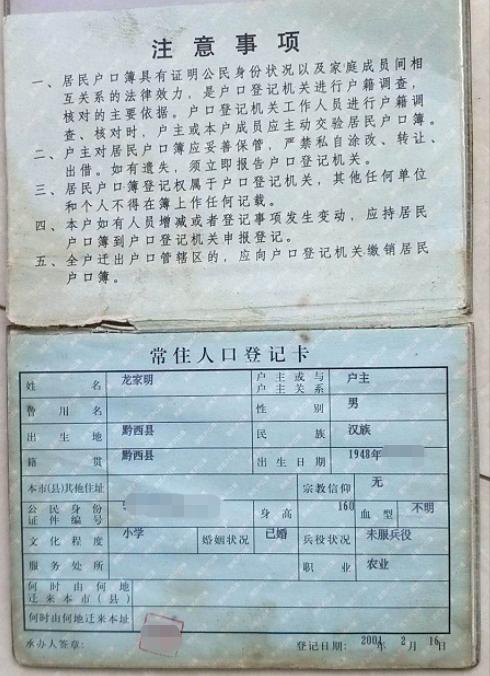 注意事项
一、居民户口簿具有证明公民身份状况以及家庭成员间相
互关系的法律效力，是户口登记机关进行户籍调查，
核对的主要依据。户口登记机关工作人员进行户籍调
查、核对时，户主或本户成员应主动交验居民户口簿。
二、户主对居民户口簿应妥善保管，严禁私自涂改、转让、
出借。如有遗失，须立即报告户口登记机关。
三、居民户口簿登记权属于户口登记机关，其他任何单位
和个人不得在簿上作任何记载。
四、本户如有人员增减或者登记事项发生变动，应持居民
户口簿到户口登记机关申报登记。
五、全户迁出户口管辖区的，应向户口登记机关缴销居民
户口簿。
常住人口登记卡
姓名 龙家明 户主或与户主关系 户主
曾用名 性别 男
出生地 黔西县 民族 汉族
籍贯 黔西县 出生日期 1948年
本市(县)其他住址 宗教信仰 无
公民身份证件编号 身高 160 血型 不明
文化程度 小学 婚姻状况 已婚 兵役状况 未服兵役
服务处所 职业 农业
何时由何地迁来本市(县)
何时由何地迁来本址
承办人签章： 登记日期：2004年2月16日